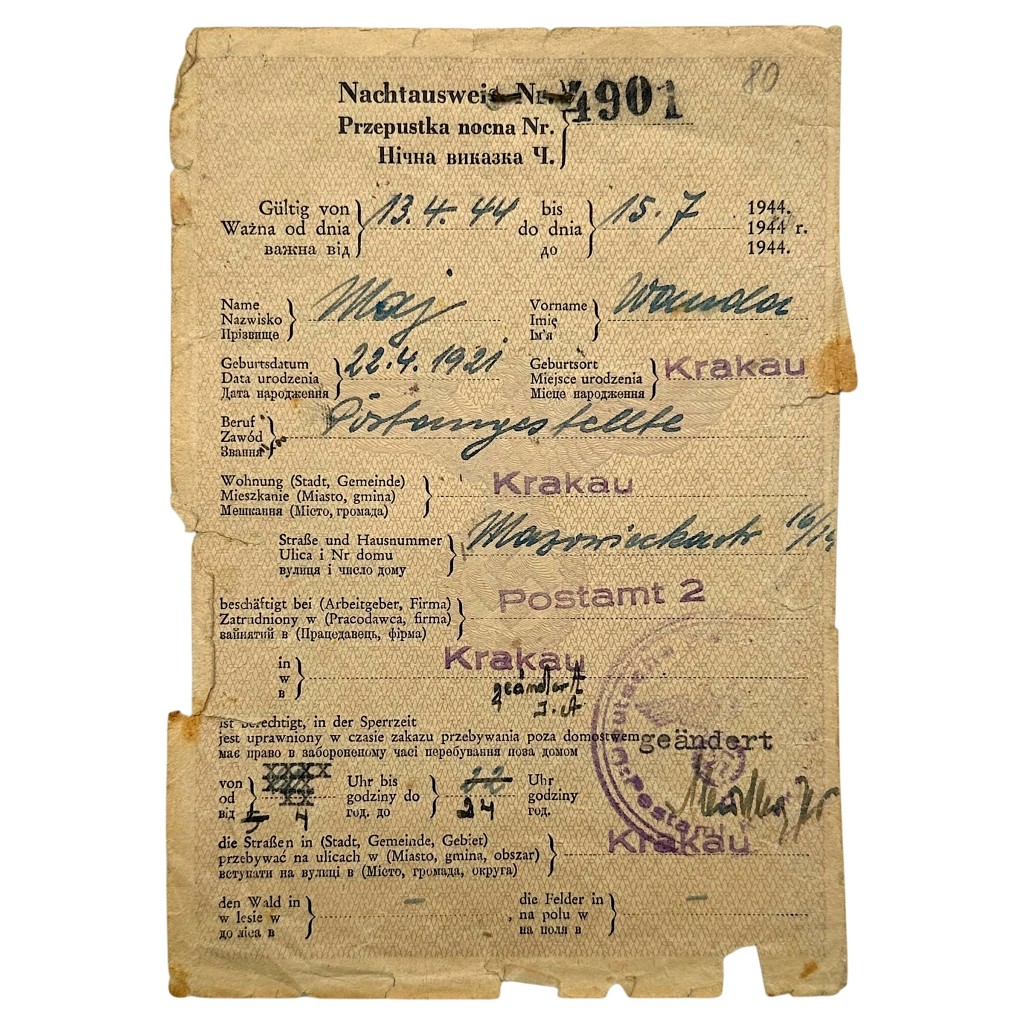 80
Nachtausweis Nr. 4901
Przepustka nocna Nr.
Нічна виказка Ч.
Gültig von 13.4.44 bis 15.7 1944.
Ważna od dnia do dnia 1944 r.
важна від до 1944.
Name Maj Vorname Wanda
Nazwisko Imię
Прізвище Ім'я
Geburtsdatum 22.4.1921 Geburtsort Krakau
Data urodzenia Miejsce urodzenia
Дата народження Місце народження
Beruf Postangestellte
Zawód
Звання
Wohnung (Stadt, Gemeinde) Krakau
Mieszkanie (Miasto, gmina)
Мешкання (Місто, громада)
Straße und Hausnummer Mazowieckastr 16/14
Ulica i Nr domu
вулиця і число дому
beschäftigt bei (Arbeitgeber, Firma) Postamt 2
Zatrudniony w (Pracodawca, firma)
зайнятий в (Працедавець, фірма)
in Krakau
w
в
geändert
I. A
ist berechtigt, in der Sperrzeit
jest uprawniony w czasie zakazu przebywania poza domostwem
має право в забороненому часі перебування поза домом
geändert
von Uhr bis 22 Uhr
od godziny do godziny
від 5 4 год. до 24 год.
die Straßen in (Stadt, Gemeinde, Gebiet) Krakau
przebywać na ulicach w (Miasto, gmina, obszar)
вступати на вулиці в (Місто, громада, округа)
den Wald in – die Felder in –
w lesie w na polu w
до ліса в на поля в